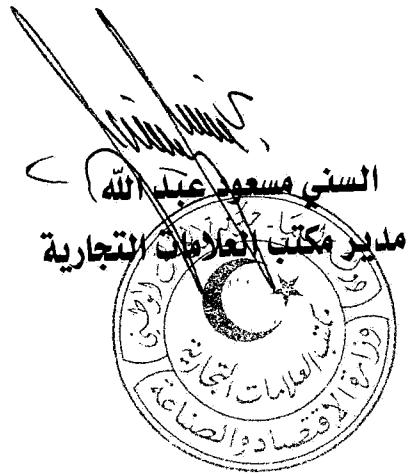 السني مسعود عبد الله
مدير مكتب العلامات التجارية
مكتب العلامات التجارية
وزارة الإقتصاد والصناعة